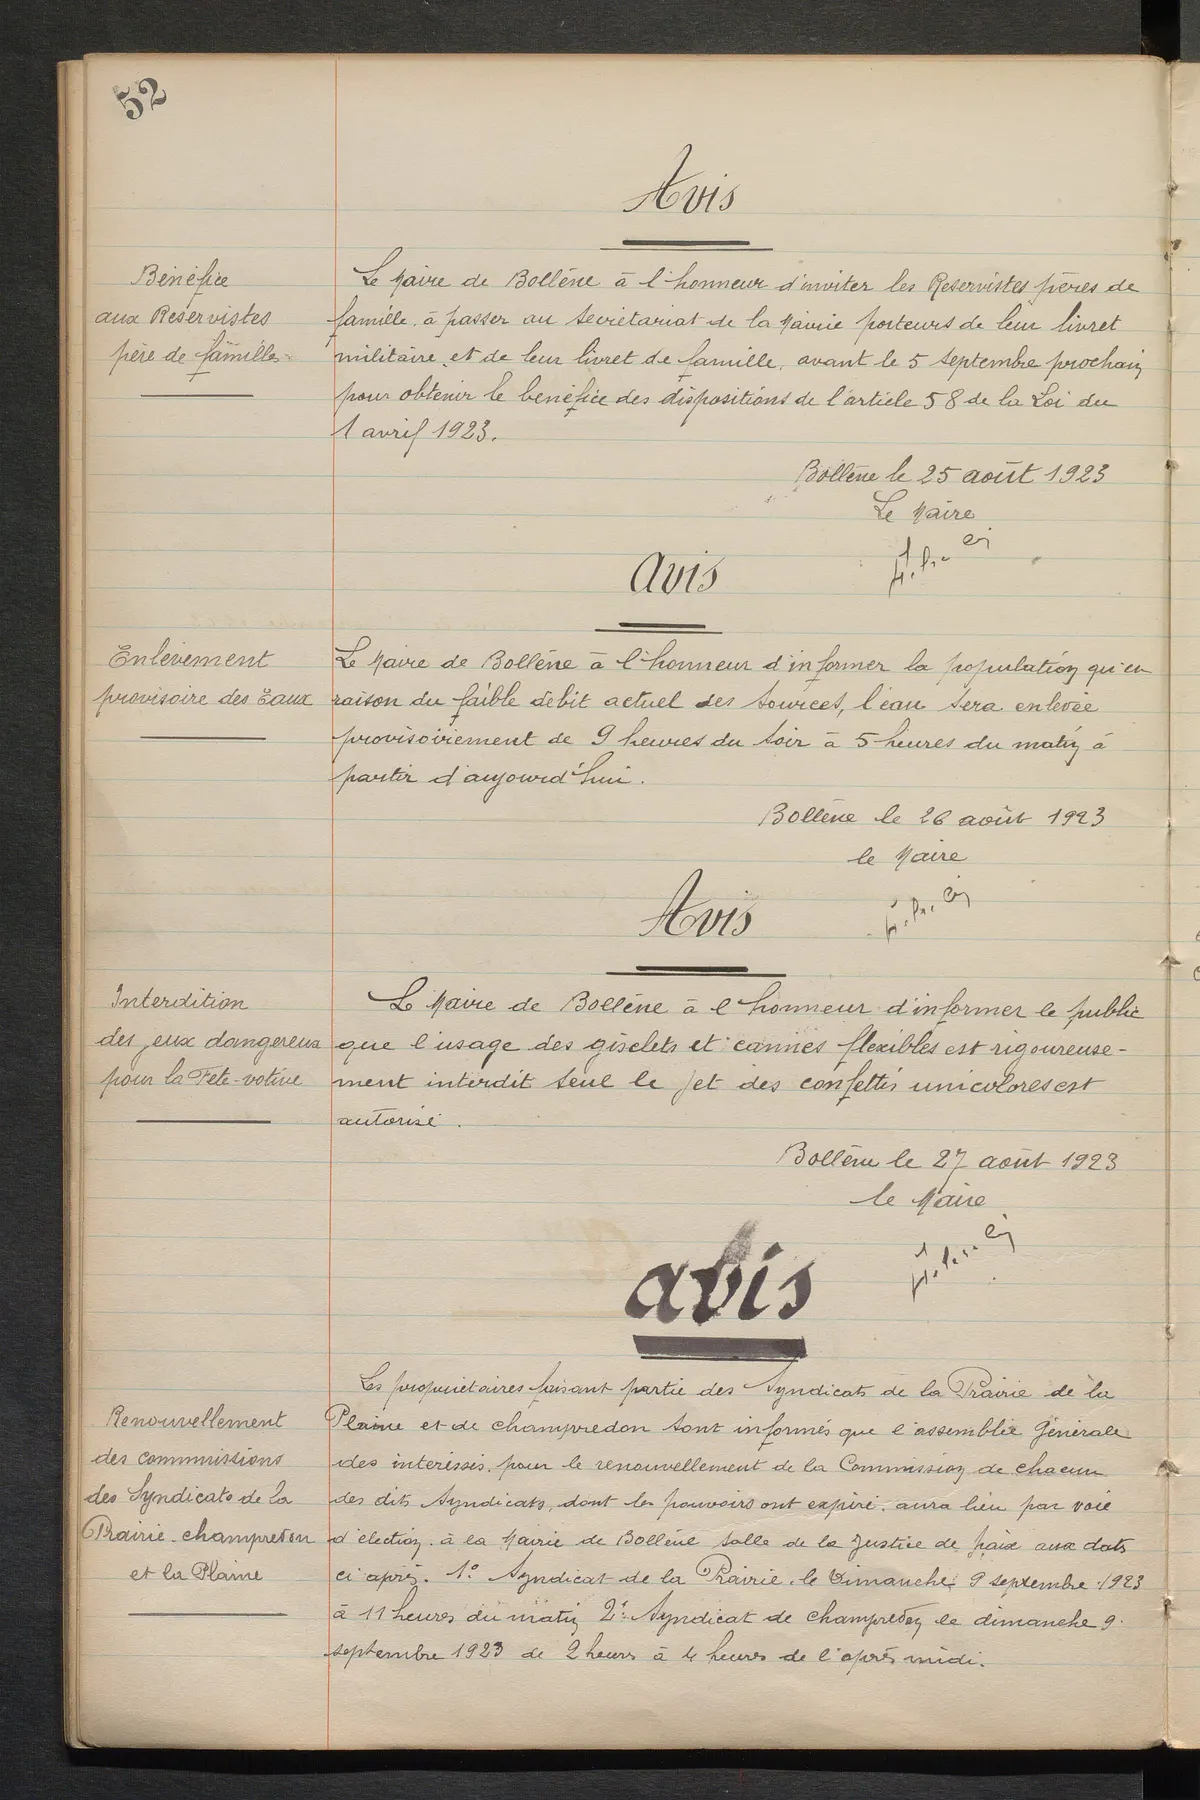 52
Avis
Bénéfice
aux Réservistes
père de famille
Le Maire de Bollène à l'honneur d'inviter les Réservistes pères de
famille à passer au secrétariat de la Mairie porteurs de leur livret
militaire et de leur livret de famille, avant le 5 septembre prochain
pour obtenir le bénéfice des dispositions de l'article 58 de la Loi du
1 avril 1923.
Bollène le 25 août 1923
Le Maire
avis
Enlèvement
provisoire des Eaux
Le Maire de Bollène à l'honneur d'informer la population qu'en
raison du faible débit actuel des sources, l'eau sera enlevée
provisoirement de 9 heures du soir à 5 heures du matin à
partir d'aujourd'hui.
Bollène le 26 août 1923
le Maire
Avis
Interdition
des jeux dangereux
pour la Fete-votive
Le Maire de Bollène à l'honneur d'informer le public
que l'usage des gisclets et cannes flexibles est rigoureuse-
ment interdit seul le jet des confettis unicolores est
autorisé.
Bollène le 27 août 1923
le Maire
avis
Renouvellement
des commissions
des Syndicats de la
Prairie-champredon
et la Plaine
Les propriétaires faisant partie des Syndicats de la Prairie de la
Plaine et de champredon sont informés que l'assemblée Générale
des intéréssés, pour le renouvellement de la Commission de chacun
des dits Syndicats, dont les pouvoirs ont expiré, aura lieu par voie
d'élection, à la Mairie de Bollène salle de la Justice de paix aux dates
ci après. 1º Syndicat de la Prairie, le Dimanche 9 septembre 1923
à 11 heures du matin 2º Syndicat de champredon le dimanche 9
septembre 1923 de 2 heures à 4 heures de l'après midi.